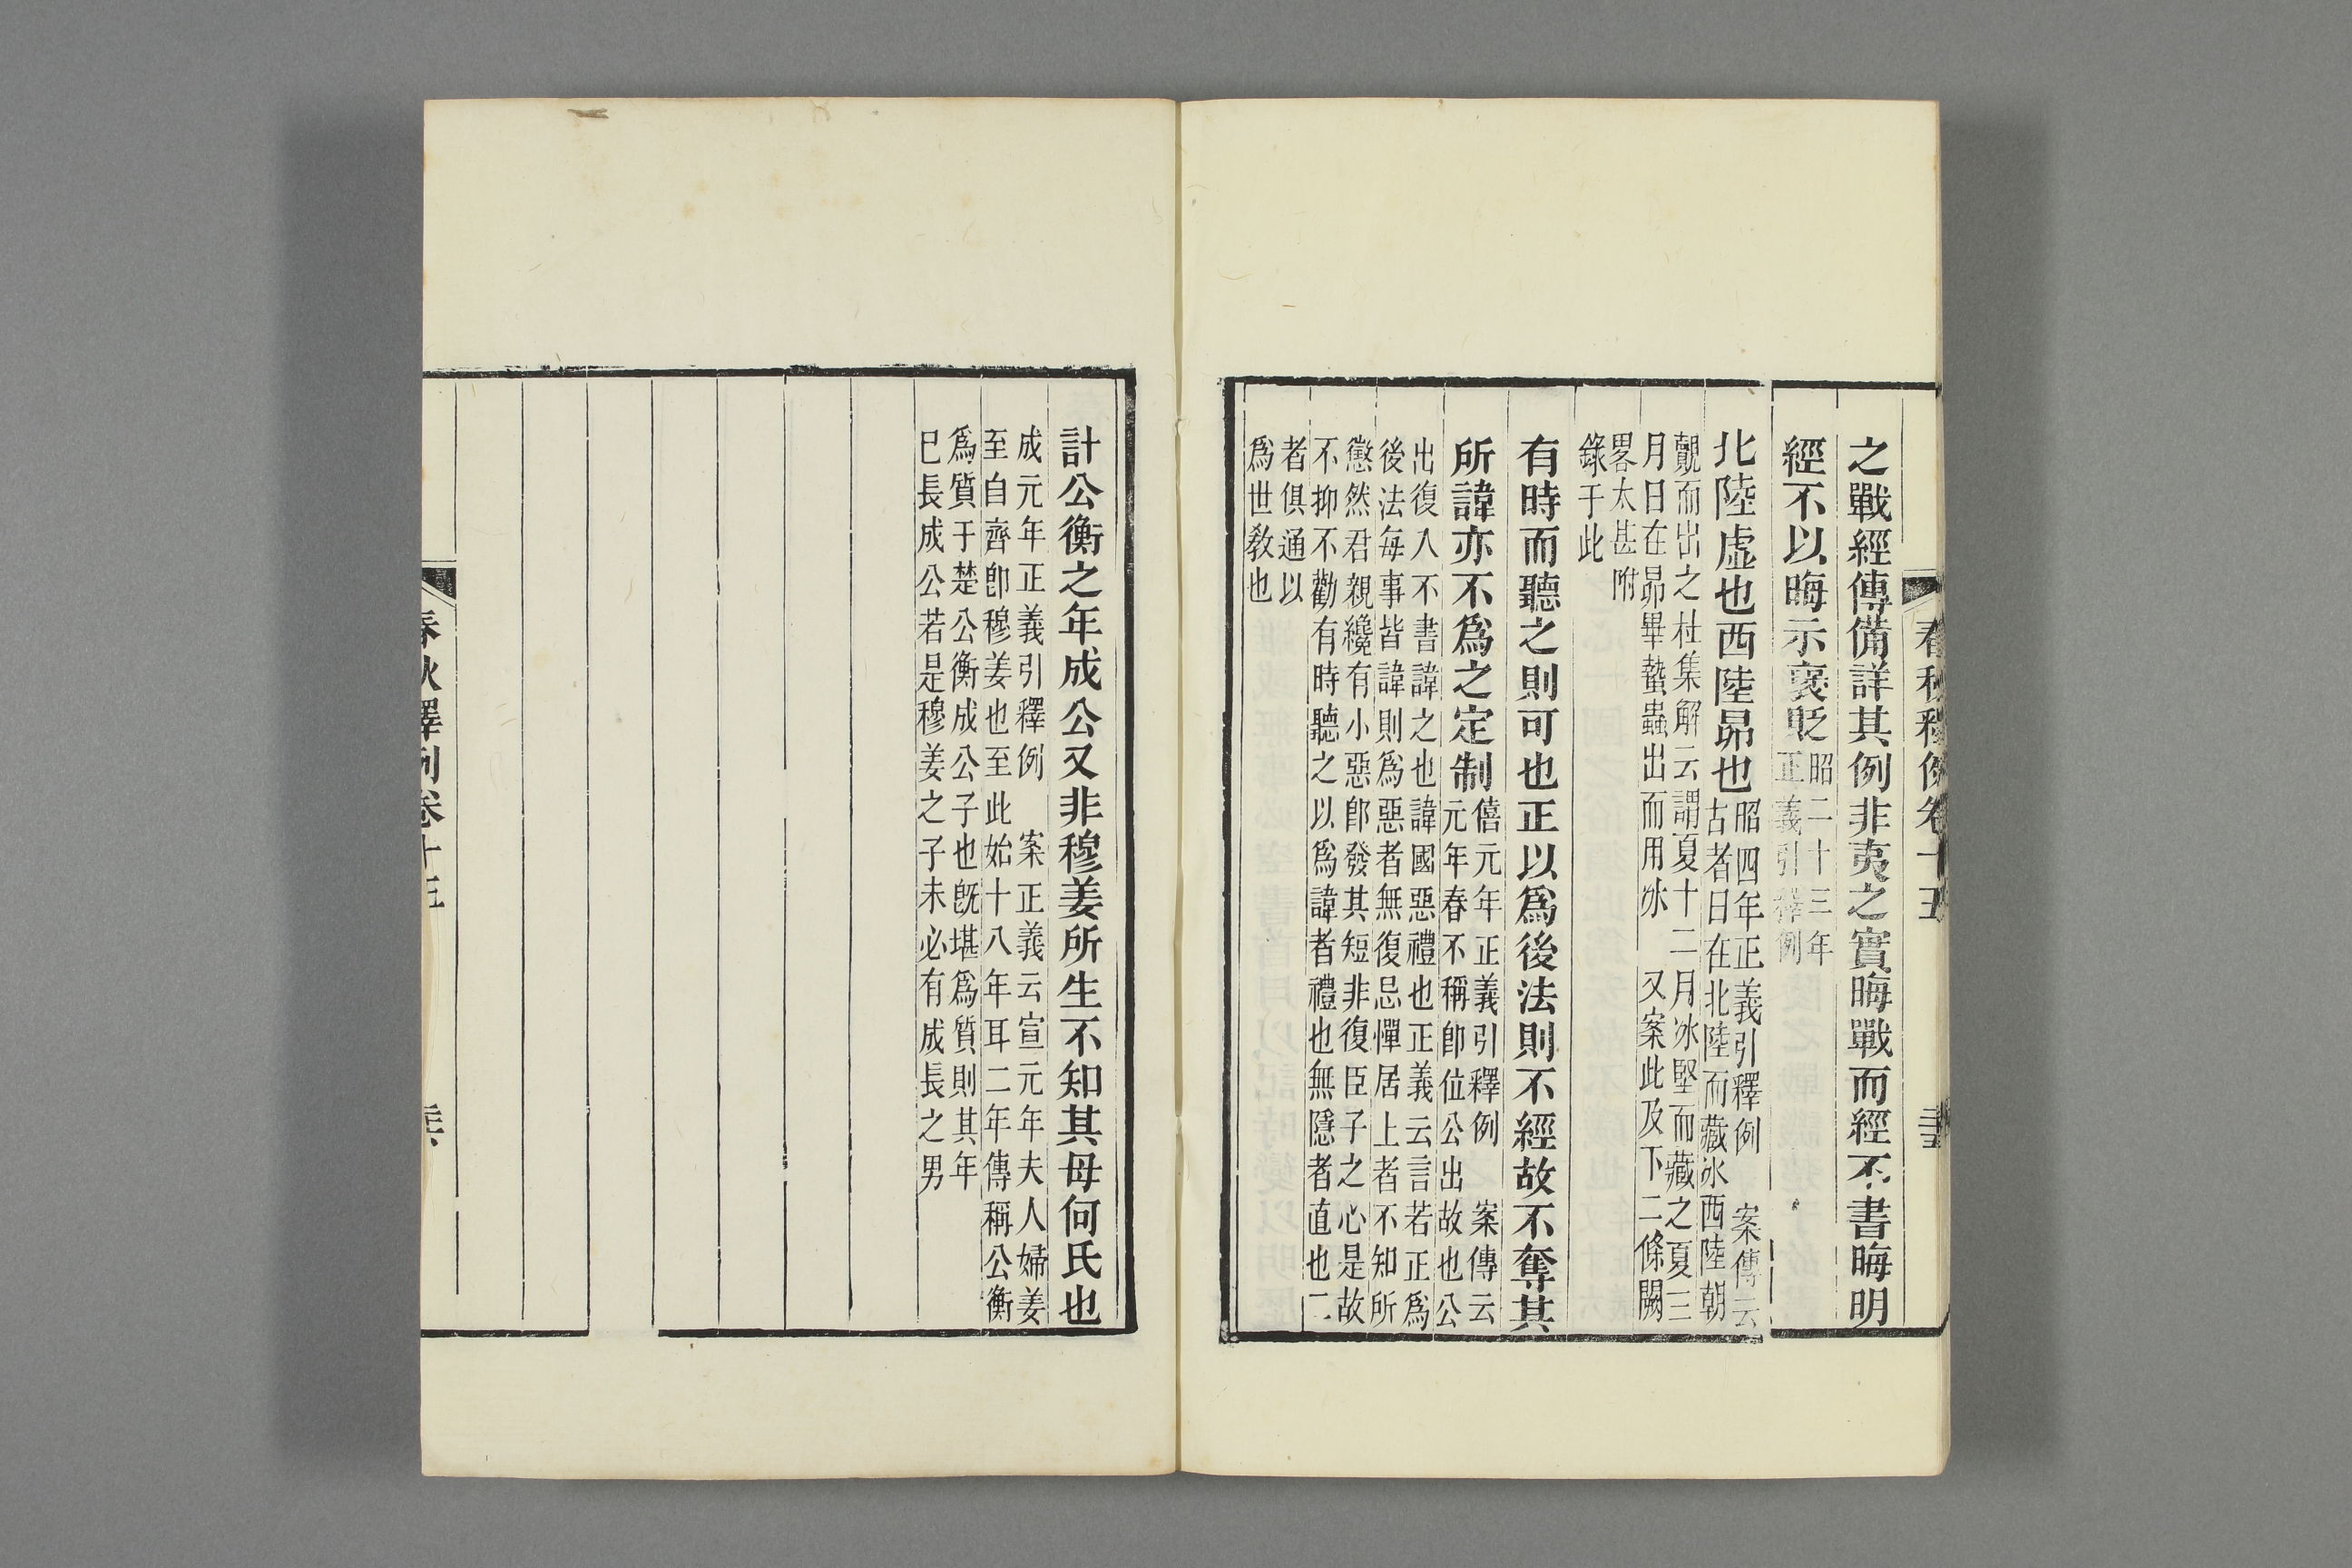 春秋釋例卷十五
之戰經傳備詳其例非夷之實晦戰而經不書晦明
經不以晦示褒貶
昭二十三年
正義引釋例
北陸虛也西陸昴也
昭四年正義引釋例 案傳云
古者日在北陸而藏冰西陸朝
覿而出之杜集解云謂夏十二月冰堅而藏之夏三
月日在昴畢蟄蟲出而用冰 又案此及下二條闕
畧太甚附
錄于此
有時而聽之則可也正以爲後法則不經故不奪其
所諱亦不爲之定制
僖元年正義引釋例 案傳云
元年春不稱卽位公出故也公
出復入不書諱之也諱國惡禮也正義云言若正爲
後法每事皆諱則爲惡者無復忌憚居上者不知所
懲然君親纔有小惡卽發其短非復臣子之心是故
不抑不勸有時聽之以爲諱者禮也無隱者直也二
者俱通以
爲世敎也
計公衡之年成公又非穆姜所生不知其母何氏也
成元年正義引釋例 案正義云宣元年夫人婦姜
至自齊卽穆姜也至此始十八年耳二年傳稱公衡
爲質于楚公衡成公子也旣堪爲質則其年
已長成公若是穆姜之子未必有成長之男
春秋釋例卷十五